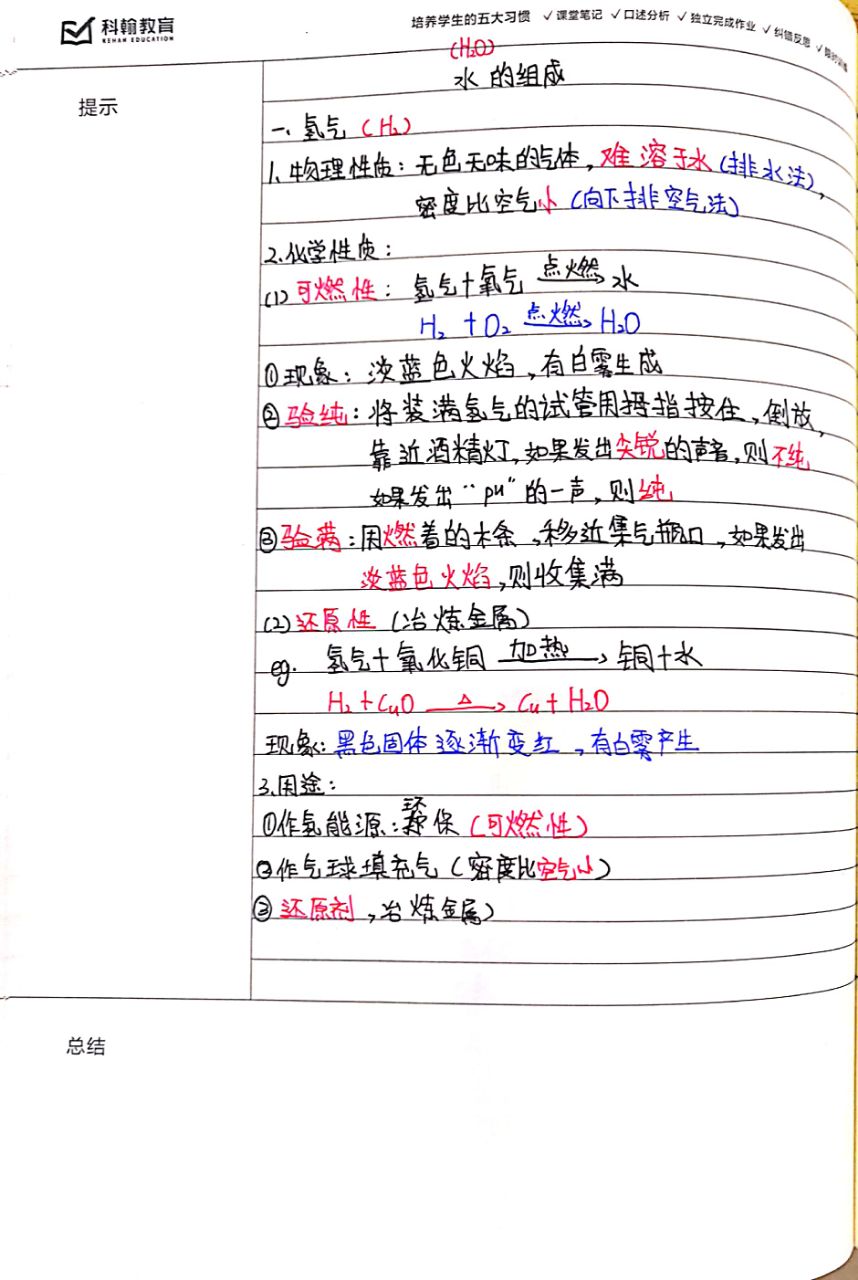 科翰教育
KEHAN EDUCATION
培养学生的五大习惯 ✓课堂笔记 ✓口述分析 ✓独立完成作业 ✓纠错反思
提示
(H₂O)
水的组成
一、氢气（H₂）
1、物理性质：无色无味的气体，难溶于水（排水法），
密度比空气小（向下排空气法）
2.化学性质：
(1)可燃性：氢气＋氧气 点燃→ 水
H₂ + O₂ 点燃→ H₂O
①现象：淡蓝色火焰，有白雾生成
②验纯：将装满氢气的试管用拇指按住，倒放，
靠近酒精灯，如果发出尖锐的声音，则不纯
如果发出“pu”的一声，则纯
③验满：用燃着的木条，移近集气瓶口，如果发出
淡蓝色火焰，则收集满
(2)还原性（冶炼金属）
eg. 氢气＋氧化铜 加热→ 铜＋水
H₂+CuO △→ Cu+H₂O
现象：黑色固体逐渐变红，有白雾产生
3.用途：
①作氢能源：环保（可燃性）
②作气球填充气（密度比空气小）
③还原剂，冶炼金属）
总结